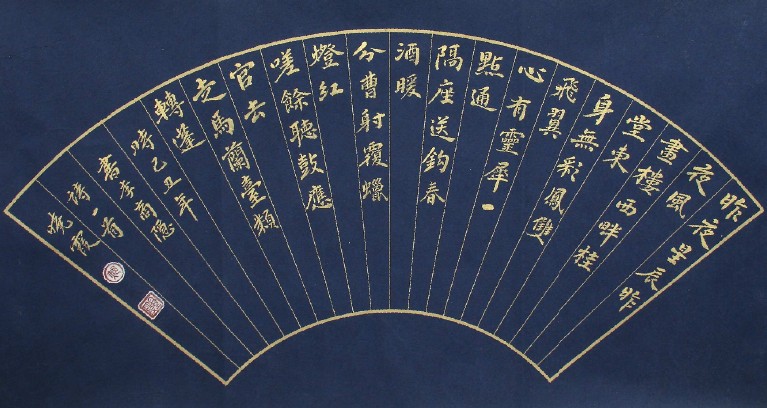 昨夜星辰昨
夜風
畫樓西畔桂
堂東
身無彩鳳雙
飛翼
心有靈犀一
點通
隔座送鈎春
酒暖
分曹射覆蠟
燈紅
嗟餘聽鼓應
官去
走馬蘭臺類
轉蓬
時己丑年
書李商隱
詩一首
曉霞